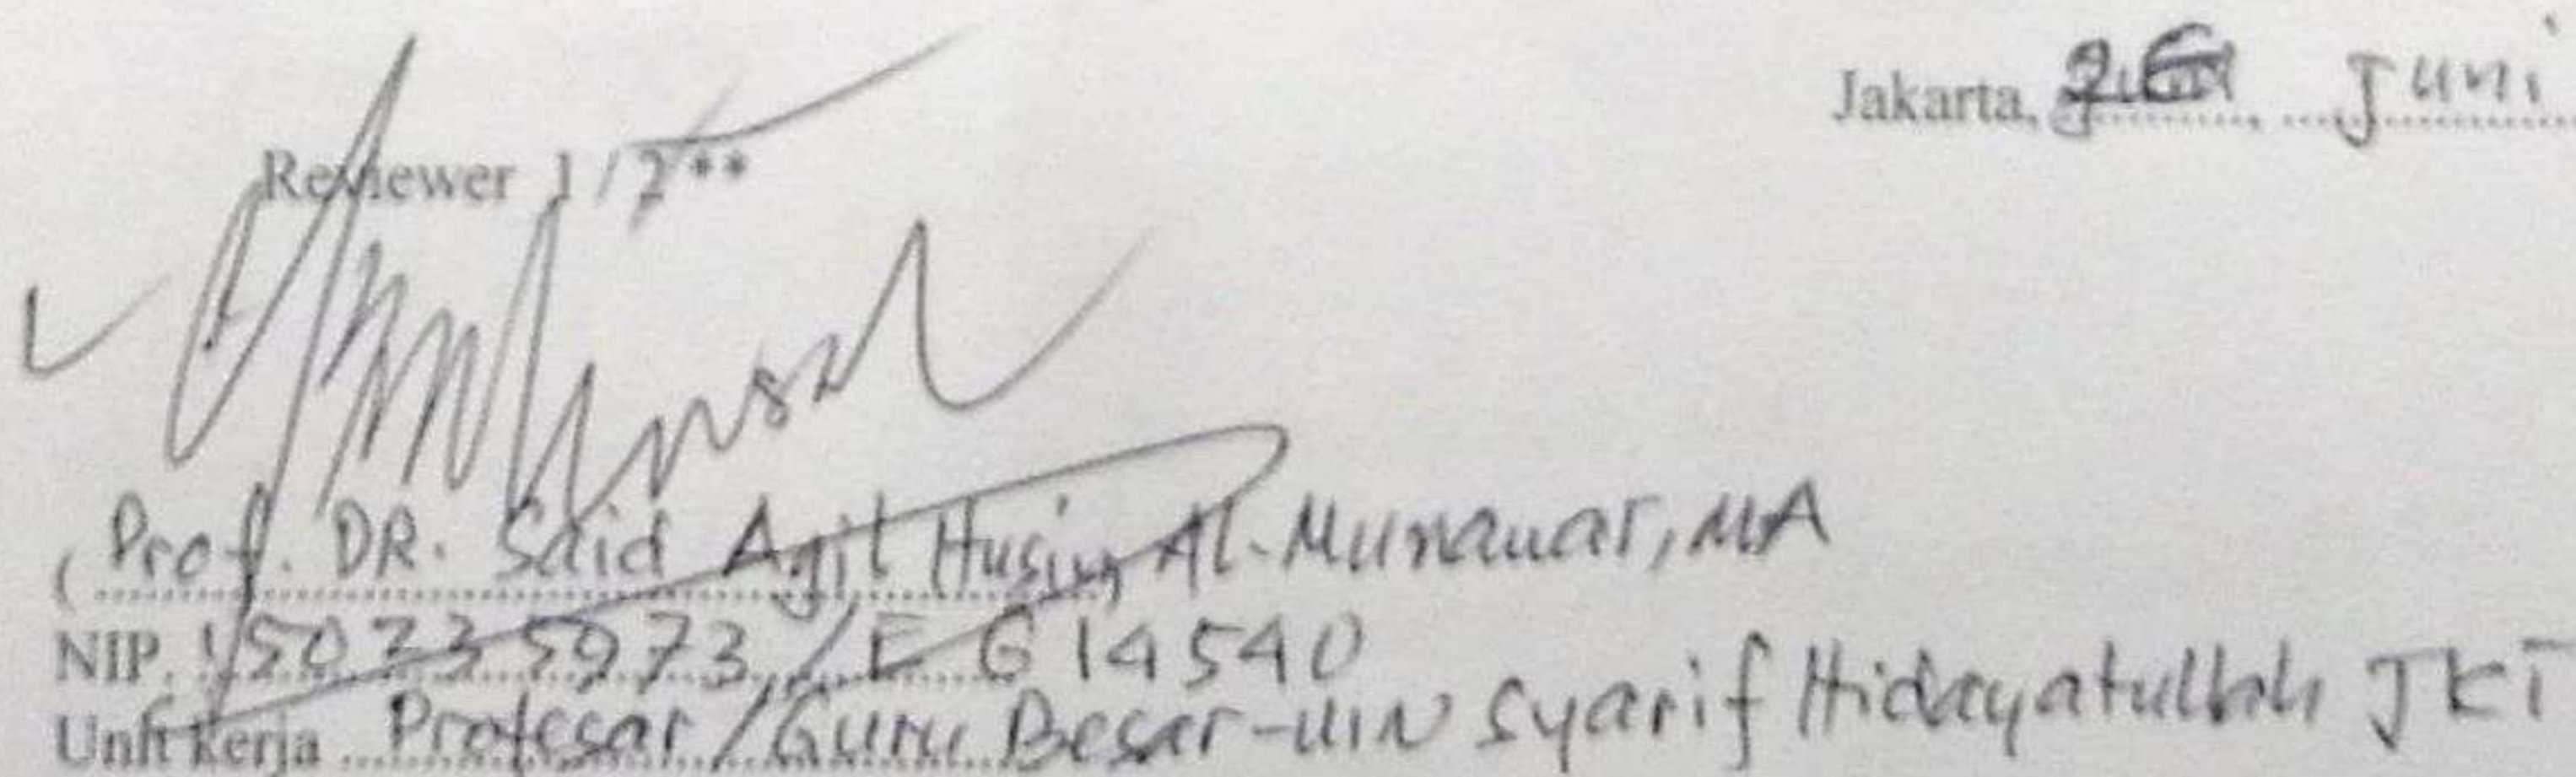 Jakarta, 26 Juni
Reviewer 1 / 2 **
( Prof. DR. Said Agil Husin Al-Munawar, MA
NIP. 150235973 / E G 14540
Unit kerja Professar / Guru Besar-UIN Syarif Hidayatullah JKT